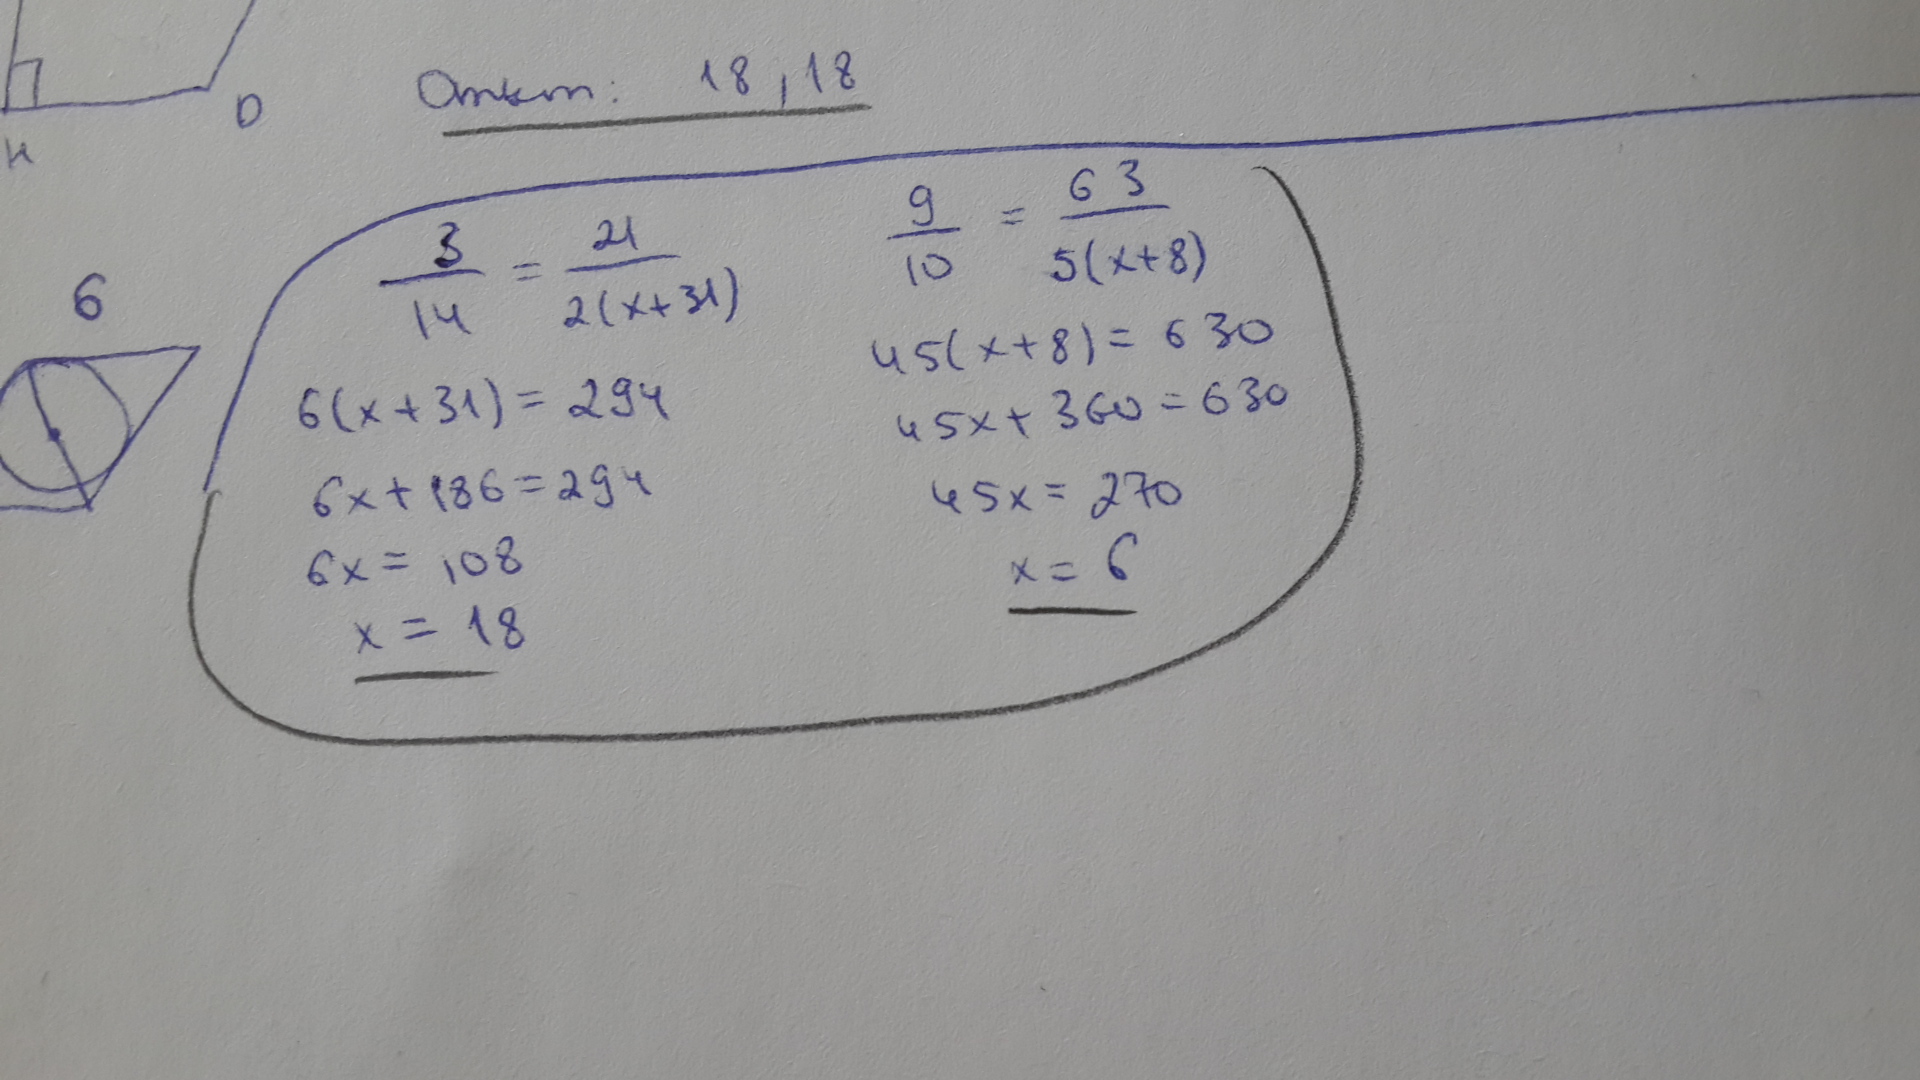 Ответ: 18,18
D
H
6
3/14 = 21/2(x+31)
6(x+31) = 294
6x+186=294
6x = 108
x = 18
9/10 = 63/5(x+8)
45(x+8) = 630
45x+360=630
45x = 270
x = 6